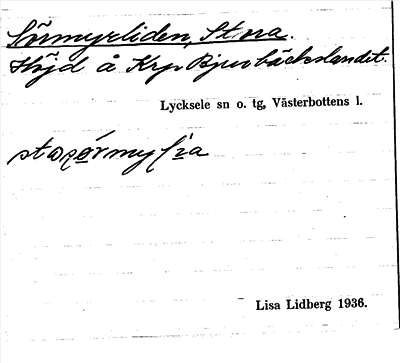 Sörmyrliden, Stora.
Höjd å Krp Bjurbäckslandet.
Lycksele sn o. tg, Västerbottens l.
Lisa Lidberg 1936.